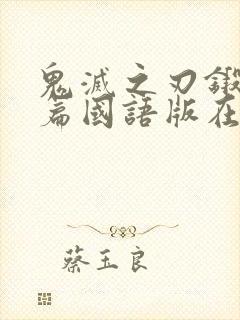 鬼滅之刃鍛
篇國語版在
蔡玉良